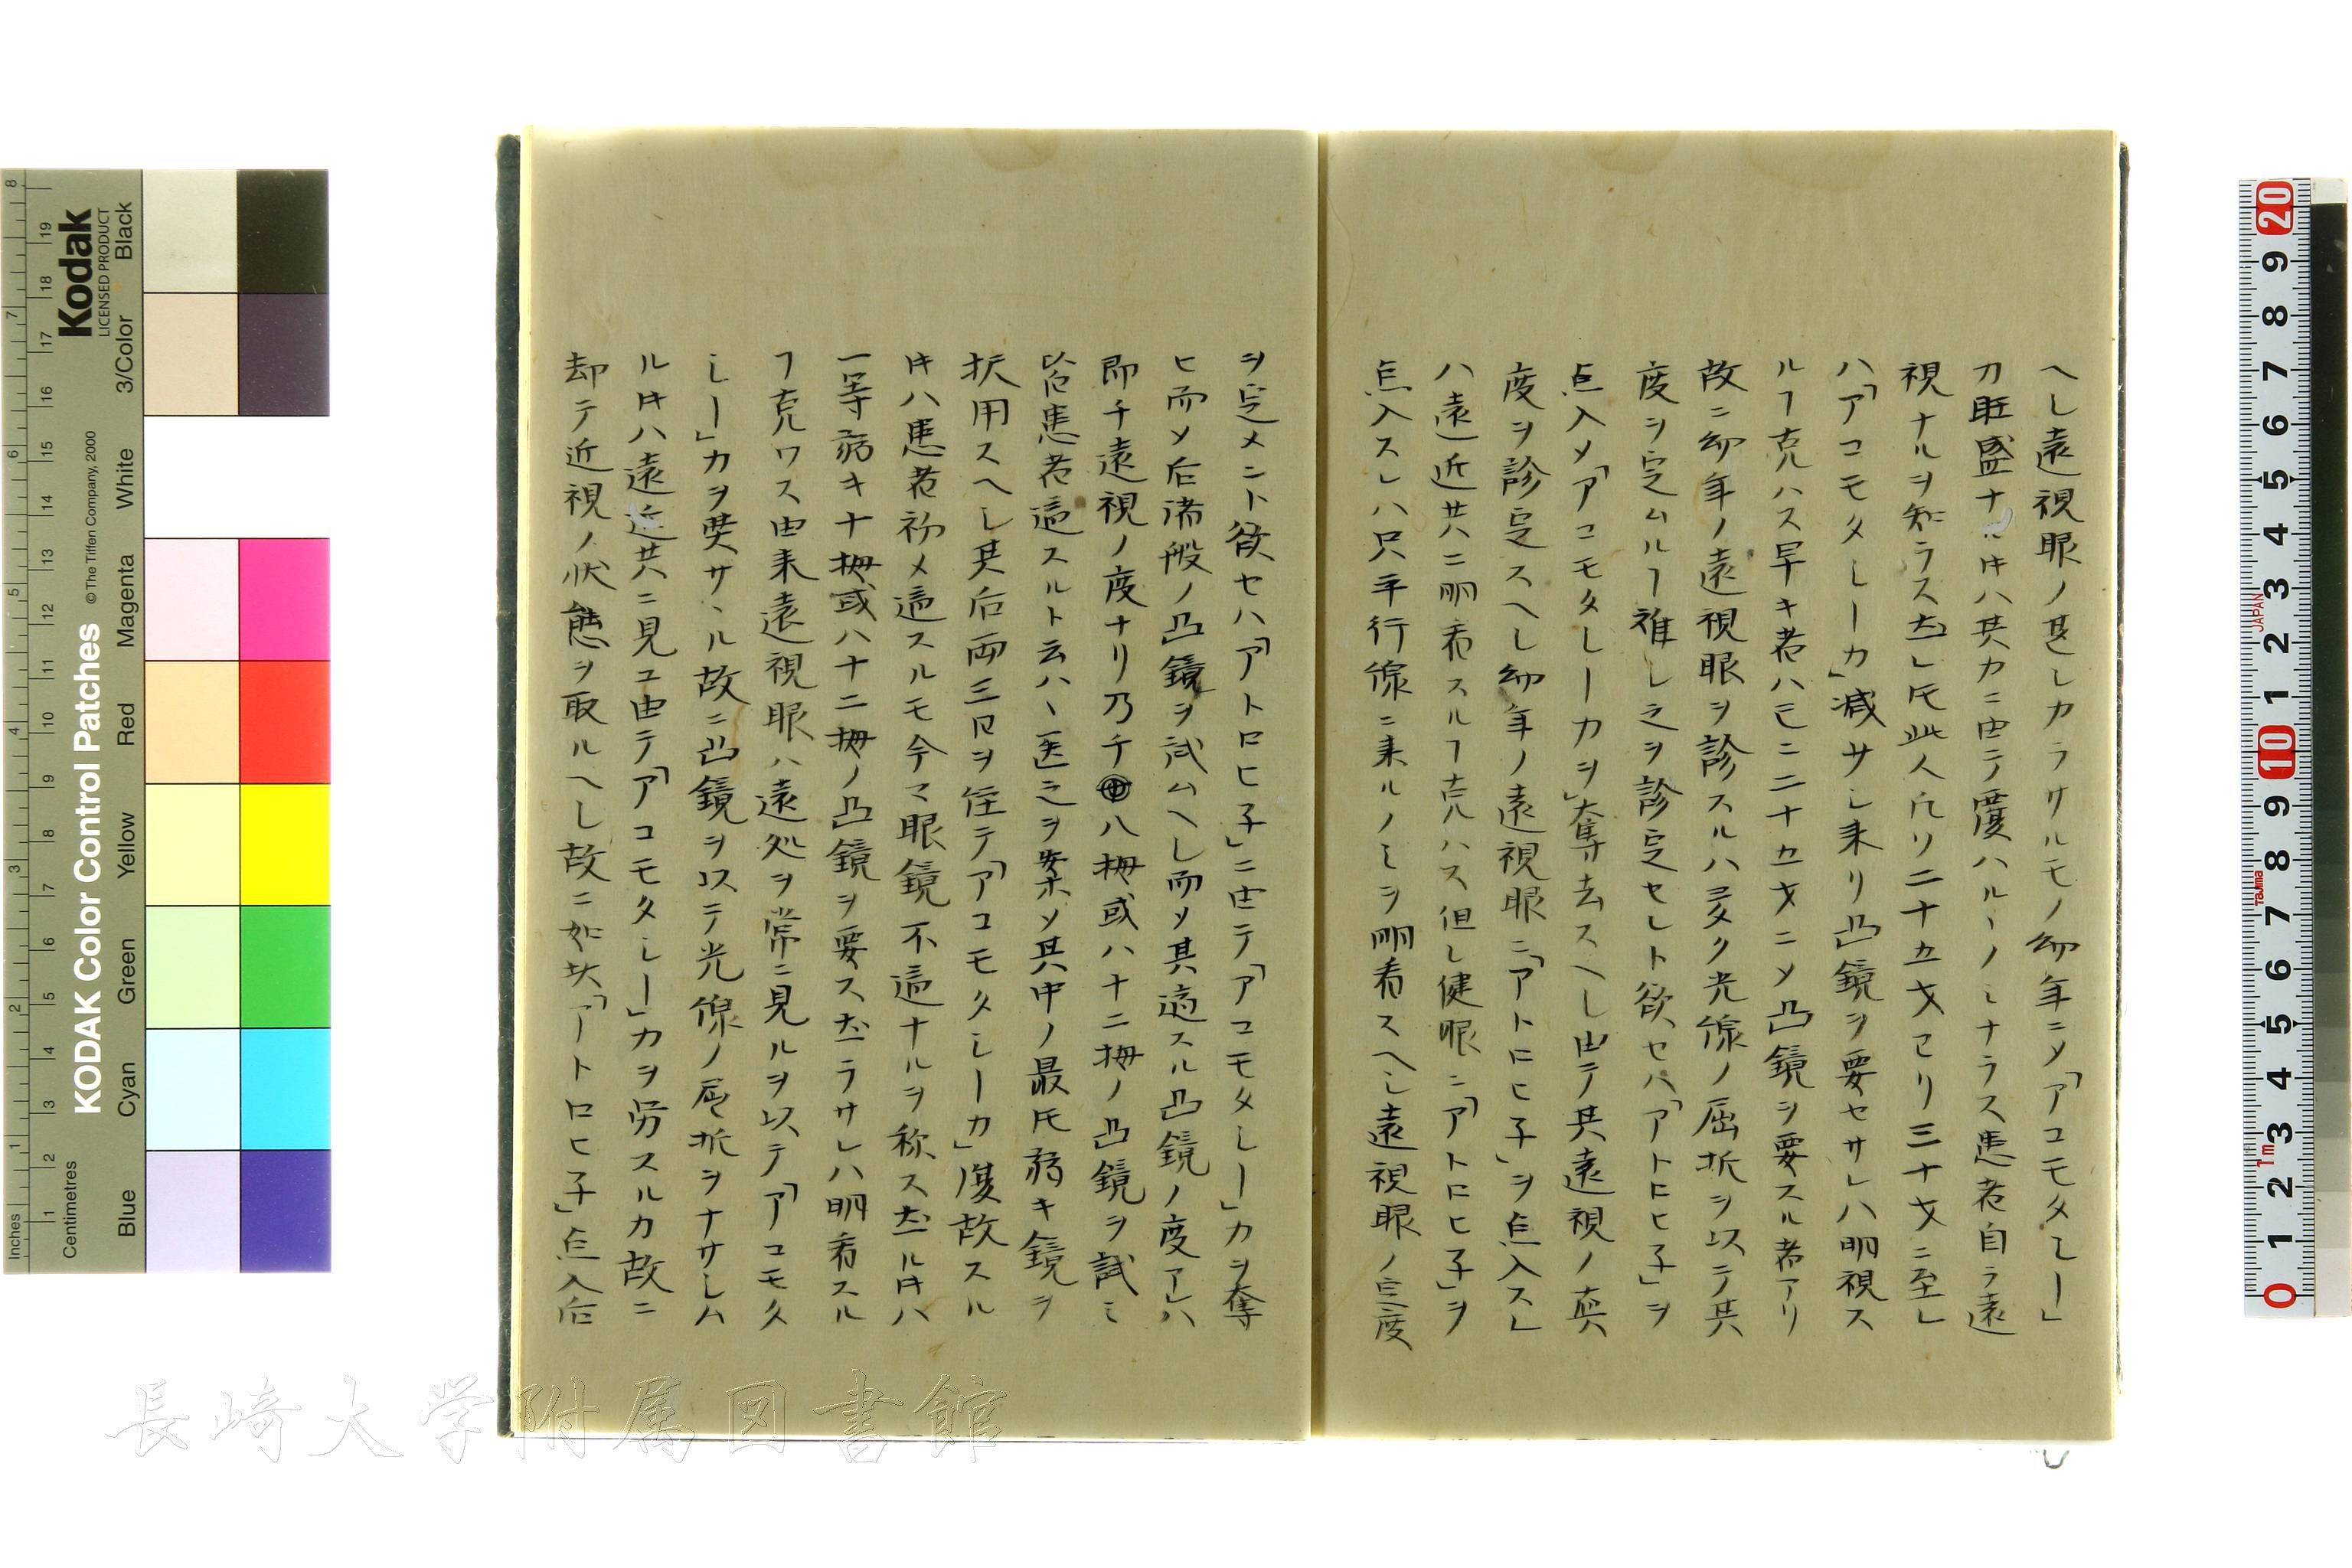 ヘシ遠視眼ノ甚シカラサルモノ幼年ニメ「アコモタシー」
力旺盛ナル𪜈ハ其力ニ由テ覆ハルヽノミナラス患者自ラ遠
視ナルヲ知ラス然レ𪜈此人凡ソ二十五才ヨリ三十才ニ至レ
ハ「アコモタシー力」減サシ来リ凸鏡ヲ要セサレハ明視ス
ルヿ克ハス早キ者ハ已ニ二十五才ニメ凸鏡ヲ要スル者アリ
故ニ幼年ノ遠視眼ヲ診スルハ多ク光線ノ屈折ヲ以テ其
度ヲ定ムルヿ難シ之ヲ診定セント欲セハ「アトロヒ子」ヲ
点入メ「アコモタシー力ヲ」奪去スヘシ由テ其遠視ノ真
度ヲ診定スヘシ幼年ノ遠視眼ニ「アトロヒ子」ヲ点入スレ
ハ遠近共ニ明看スルヿ克ハス但シ健眼ニ「アトロヒ子」ヲ
点入スレハ只平行線ニ来ルノミヲ明看スヘシ遠視眼ノ定度
ヲ定メント欲セハ「アトロヒ子」ニ由テ「アコモタシー」力ヲ奪
ヒ而メ后諸般ノ凸鏡ヲ試ムヘシ而メ其適スル凸鏡ノ度アハ
即チ遠視ノ度ナリ乃チ八拇或ハ十二拇ノ凸鏡ヲ試ミ
若患者適スルト云ハヽ医之ヲ案メ其中ノ最𪜈弱キ鏡ヲ
択用スヘシ其后両三日ヲ侄テ「アコモタシー力」復故スル
𪜈ハ患者初メ適スルモ今マ眼鏡不適ナルヲ称ス然ル𪜈ハ
一等弱キ十拇或ハ十二拇ノ凸鏡ヲ要ス然ラサレハ明看スル
ヿ克ワス由来遠視眼ハ遠処ヲ常ニ見ルヲ以テ「アコモタ
シー」力ヲ奨サヽル故ニ凸鏡ヲ以テ光線ノ屈折ヲナサシム
ル𪜈ハ遠近共ニ見ユ由テ「アコモタシー」力ヲ労スルカ故ニ
却テ近視ノ状態ヲ取ルヘシ故ニ如此「アトロヒ子」点入后
Kodak
LICENSED PRODUCT
KODAK Color Control Patches
© The Tiffen Company, 2000
Blue Cyan Green Yellow Red Magenta White 3/Color Black
Inches 1 2 3 4 5 6 7 8
Centimetres 1 2 3 4 5 6 7 8 9 10 11 12 13 14 15 16 17 18 19
0 1 2 3 4 5 6 7 8 9 10 1 2 3 4 5 6 7 8 9 20
1m Tajima JAPAN
長崎大学附属図書館